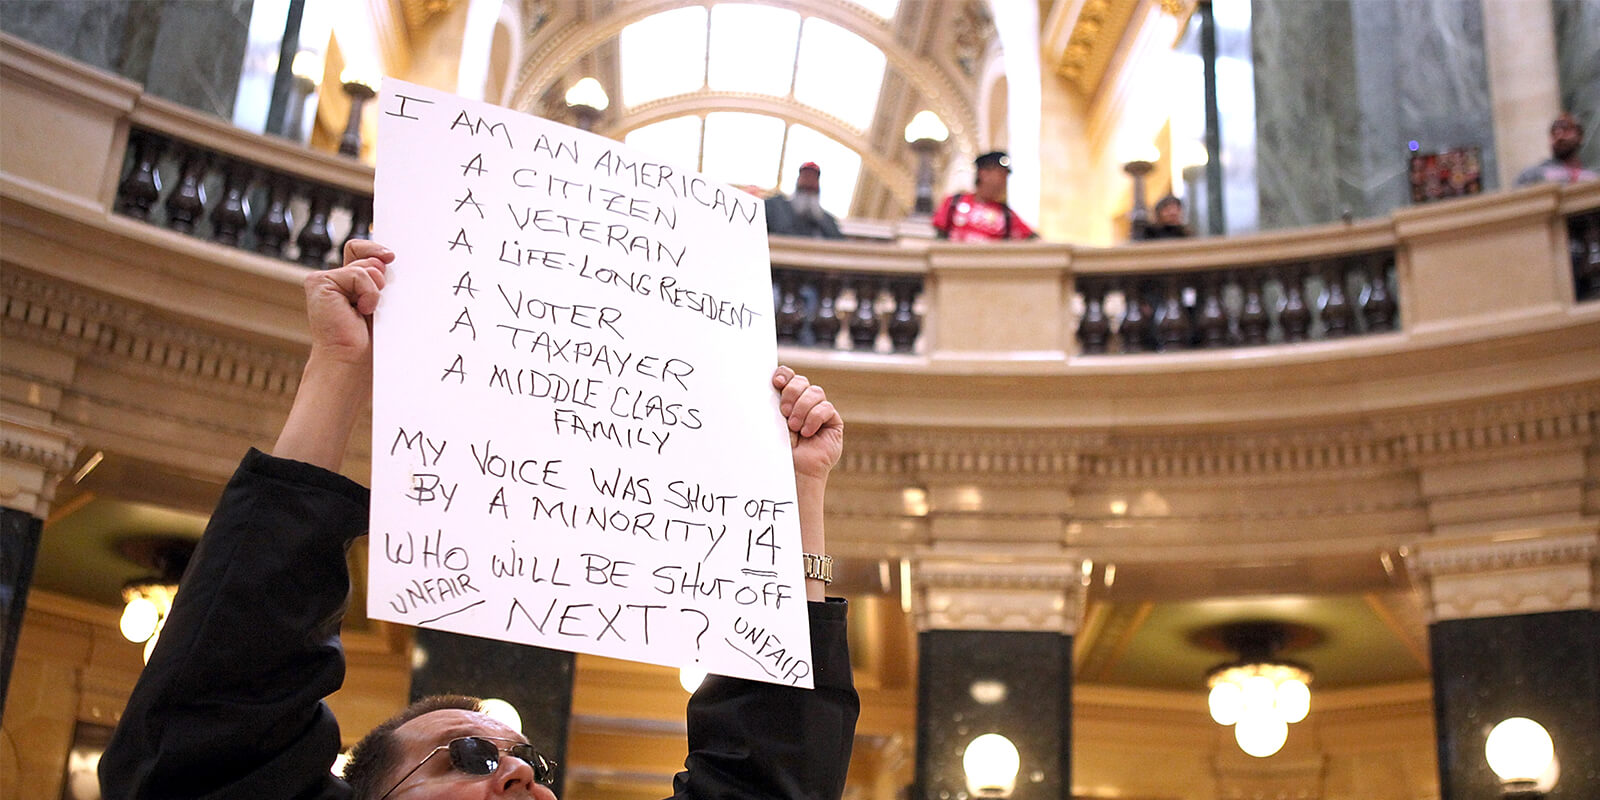 I AM AN AMERICAN
A CITIZEN
A VETERAN
A LIFE-LONG RESIDENT
A VOTER
A TAXPAYER
A MIDDLE CLASS
FAMILY
MY VOICE WAS SHUT OFF
BY A MINORITY 14
WHO WILL BE SHUT OFF
UNFAIR NEXT? UNFAIR